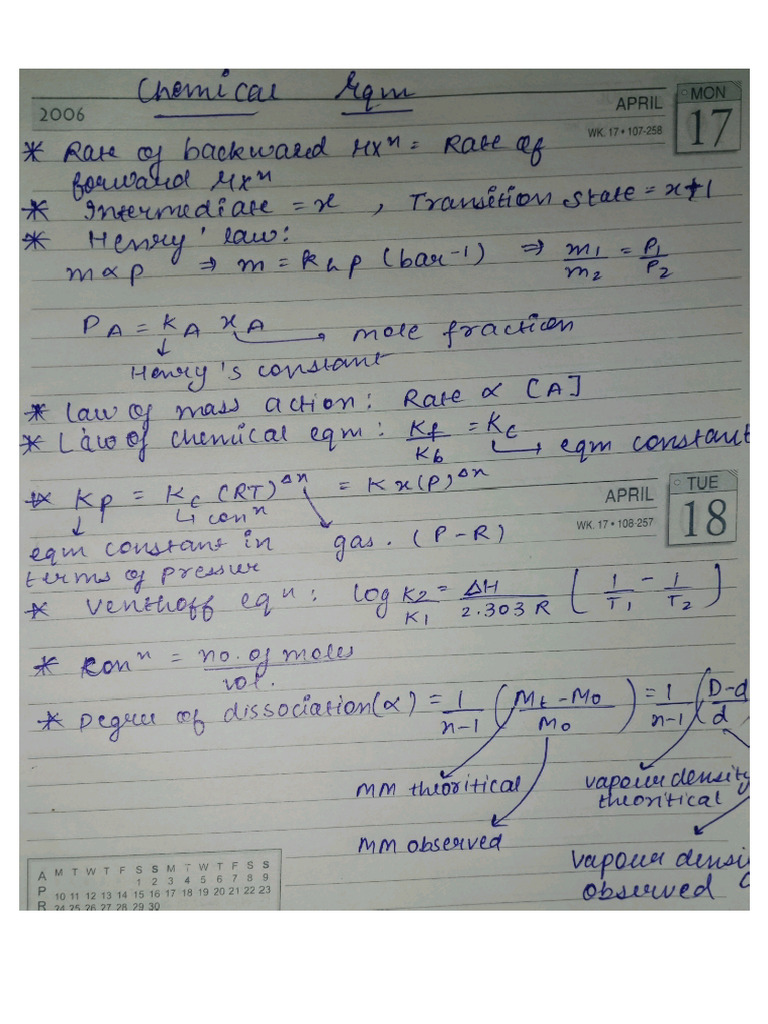 Chemical Eqm
2006
APRIL
MON
17
WK. 17 • 107-258
* Rate of backward rxⁿ = Rate of
forward rxⁿ
* Intermediate = x , Transition state = x+1
* Henry' law:
m ∝ p ⇒ m = kₕ p (bar⁻¹) ⇒ m₁/m₂ = P₁/P₂
P_A = k_A x_A → mole fraction
Henry's constant
* Law of mass action: Rate ∝ [A]
* Law of chemical eqm: K_f/K_b = K_c → eqm constant
* Kp = K_c (RT)^Δn = Kx(P)^Δn
↳ conⁿ
APRIL
TUE
18
WK. 17 • 108-257
eqm constant in gas. (P-R)
terms of pressur
* Venthoff eqⁿ: log K₂/K₁ = ΔH/2.303 R [1/T₁ - 1/T₂]
* conⁿ = no. of moles/vol.
* Degree of dissociation(α) = 1/n-1 (M_t - M_o/M_o) = 1/n-1 (D-d/d
MM theoritical
vapour density
theoritical
MM observed
vapour densi
observed
A P R
M T W T F S S M T W T F S S
1 2 3 4 5 6 7 8 9
10 11 12 13 14 15 16 17 18 19 20 21 22 23
24 25 26 27 28 29 30